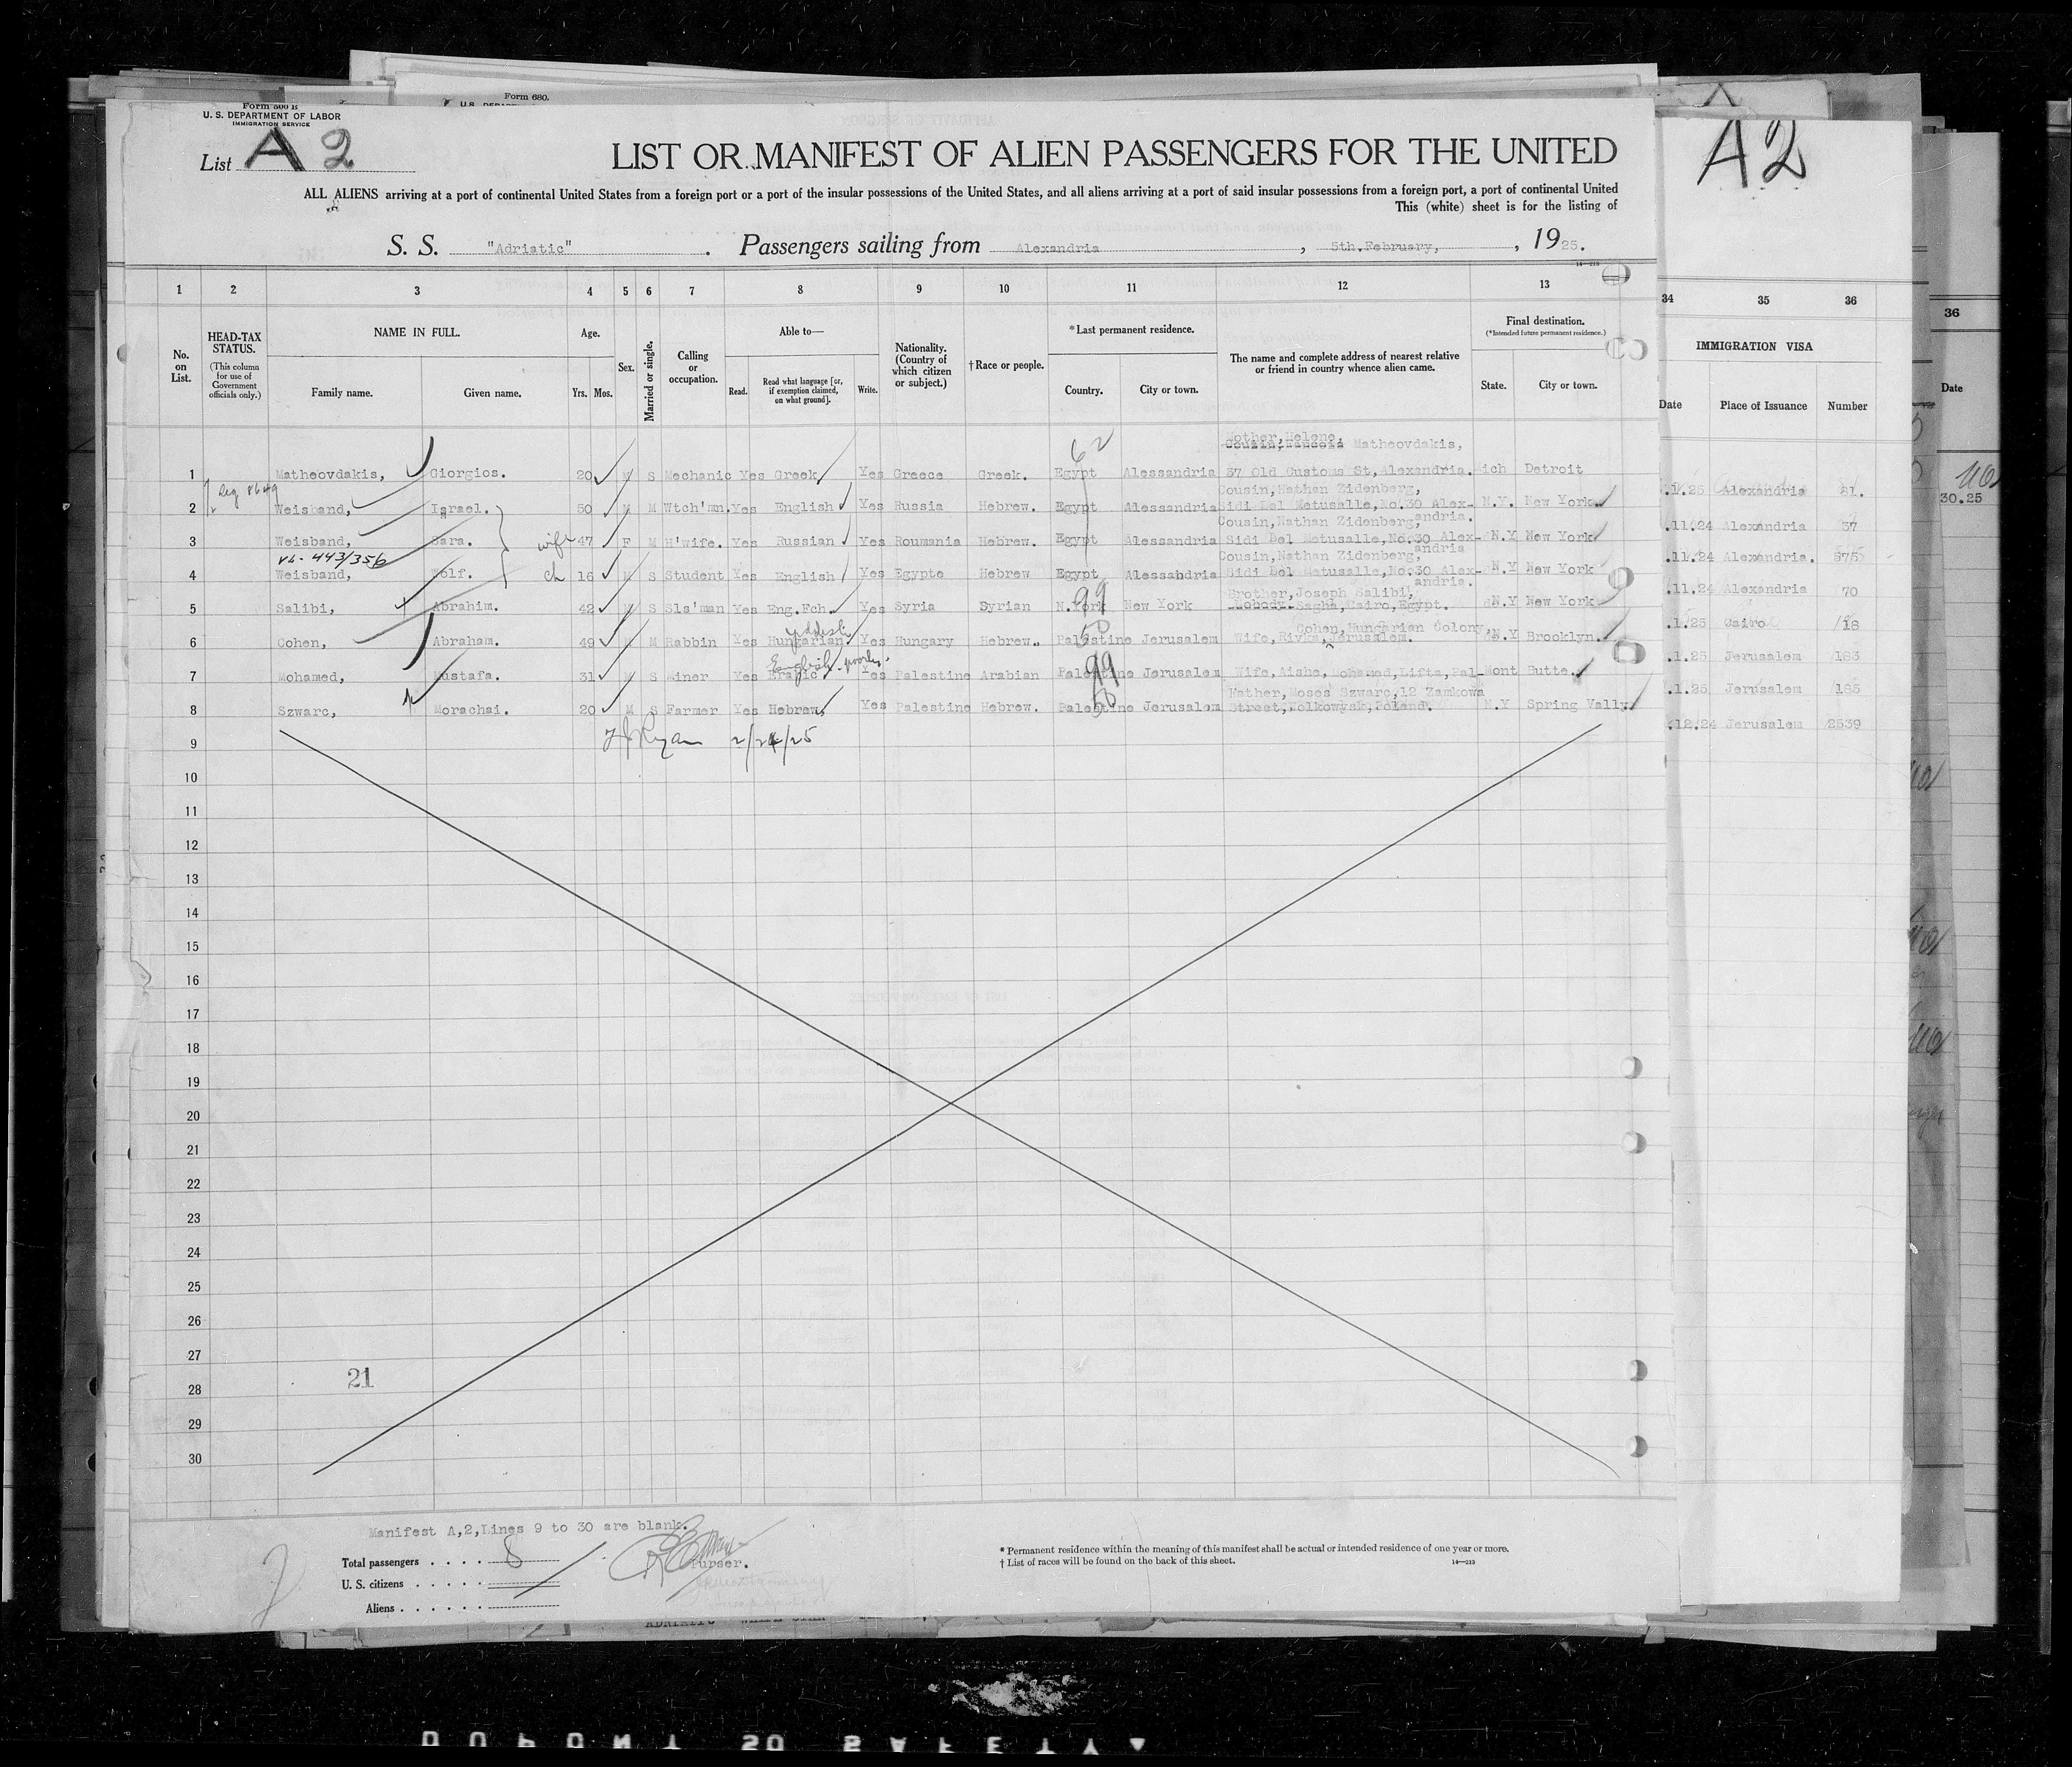 Form 500 B
Form 680.
U. S. DEPARTMENT OF LABOR
IMMIGRATION SERVICE
List A 2
LIST OR MANIFEST OF ALIEN PASSENGERS FOR THE UNITED
ALL ALIENS arriving at a port of continental United States from a foreign port or a port of the insular possessions of the United States, and all aliens arriving at a port of said insular possessions from a foreign port, a port of continental United
This (white) sheet is for the listing of
S. S. "Adriatic". Passengers sailing from Alexandria, 5th.February, 1925.
1 2 3 4 5 6 7 8 9 10 11 12 13
No. on List.
HEAD-TAX STATUS. (This column for use of Government officials only.)
NAME IN FULL. Family name. Given name.
Age. Yrs. Mos.
Sex.
Married or single.
Calling or occupation.
Able to— Read. Read what language [or, if exemption claimed, on what ground]. Write.
Nationality. (Country of which citizen or subject.)
†Race or people.
*Last permanent residence. Country. City or town.
The name and complete address of nearest relative or friend in country whence alien came.
Final destination. (*Intended future permanent residence.) State. City or town.
62 Mother, Helene, Matheovdakis,
1 Matheovdakis, Giorgios. 20 M S Mechanic Yes Greek Yes Greece Greek. Egypt Alessandria 37 Old Customs St,Alexandria. ich Detroit
Cousin,Nathan Zidenberg,
2 Weisband, Israel. 50 M M Wtch'mn. Yes English Yes Russia Hebrew. Egypt Alessandria Sidi Del Metusalle,No.30 Alex- N.Y. New York
andria.
Cousin,Nathan Zidenberg,
3 Weisband, Sara. wife 47 F M H'wife. Yes Russian Yes Roumania Hebrew. Egypt Alessandria Sidi Del Metusalle,No.30 Alex- N.Y New York
443/356 andria
Cousin,Nathan Zidenberg,
4 Weisband, Wolf. ch 16 M S Student Yes English Yes Egypte Hebrew Egypt Alessandria Sidi Del Metusalle,No.30 Alex- N.Y New York
andria.
99 Brother,Joseph Salibi,
5 Salibi, Abrahim. 42 M S Sls'man Yes Eng.Fch. Yes Syria Syrian N.York New York Sagha,Cairo,Egypt. N.Y New York
Yiddish 50 Cohen,Hungarian Colony,
6 Cohen, Abraham. 49 M M Rabbin Yes Hungarian Yes Hungary Hebrew. Palestine Jerusalem Wife,Rivka, Jerusalem. N.Y Brooklyn.
English poorly 99
7 Mohamed, Mustafa. 31 M S Miner Yes Erabic Yes Palestine Arabian Palestine Jerusalem Wife,Aishe,Mohamed,Lifta,Pal- Mont Butte.
50 Father,Moses Szwarc,12 Zamkowa
8 Szwarc, Morachai. 20 M S Farmer Yes Hebrew, Yes Palestine Hebrew. Palestine Jerusalem Street,Wolkowysk,Poland. N.Y Spring Vally.
9 Ryan 2/24/25
10
11
12
13
14
15
16
17
18
19
20
21
22
23
24
25
26
27
21
28
29
30
Manifest A,2,Lines 9 to 30 are blank.
Total passengers . . . . 8
Purser.
U. S. citizens . . . . .
Aliens . . . . . .
* Permanent residence within the meaning of this manifest shall be actual or intended residence of one year or more.
† List of races will be found on the back of this sheet. 14—233
A2
34 35 36
IMMIGRATION VISA
Date Place of Issuance Number
.1.25 Alexandria 81.
.11.24 Alexandria 37
.11.24 Alexandria. 575
.11.24 Alexandria 70
.1.25 Cairo 18
.1.25 Jerusalem 183
.1.25 Jerusalem 185
.12.24 Jerusalem 2539
36
Date
30.25
DUPONT SAFETY